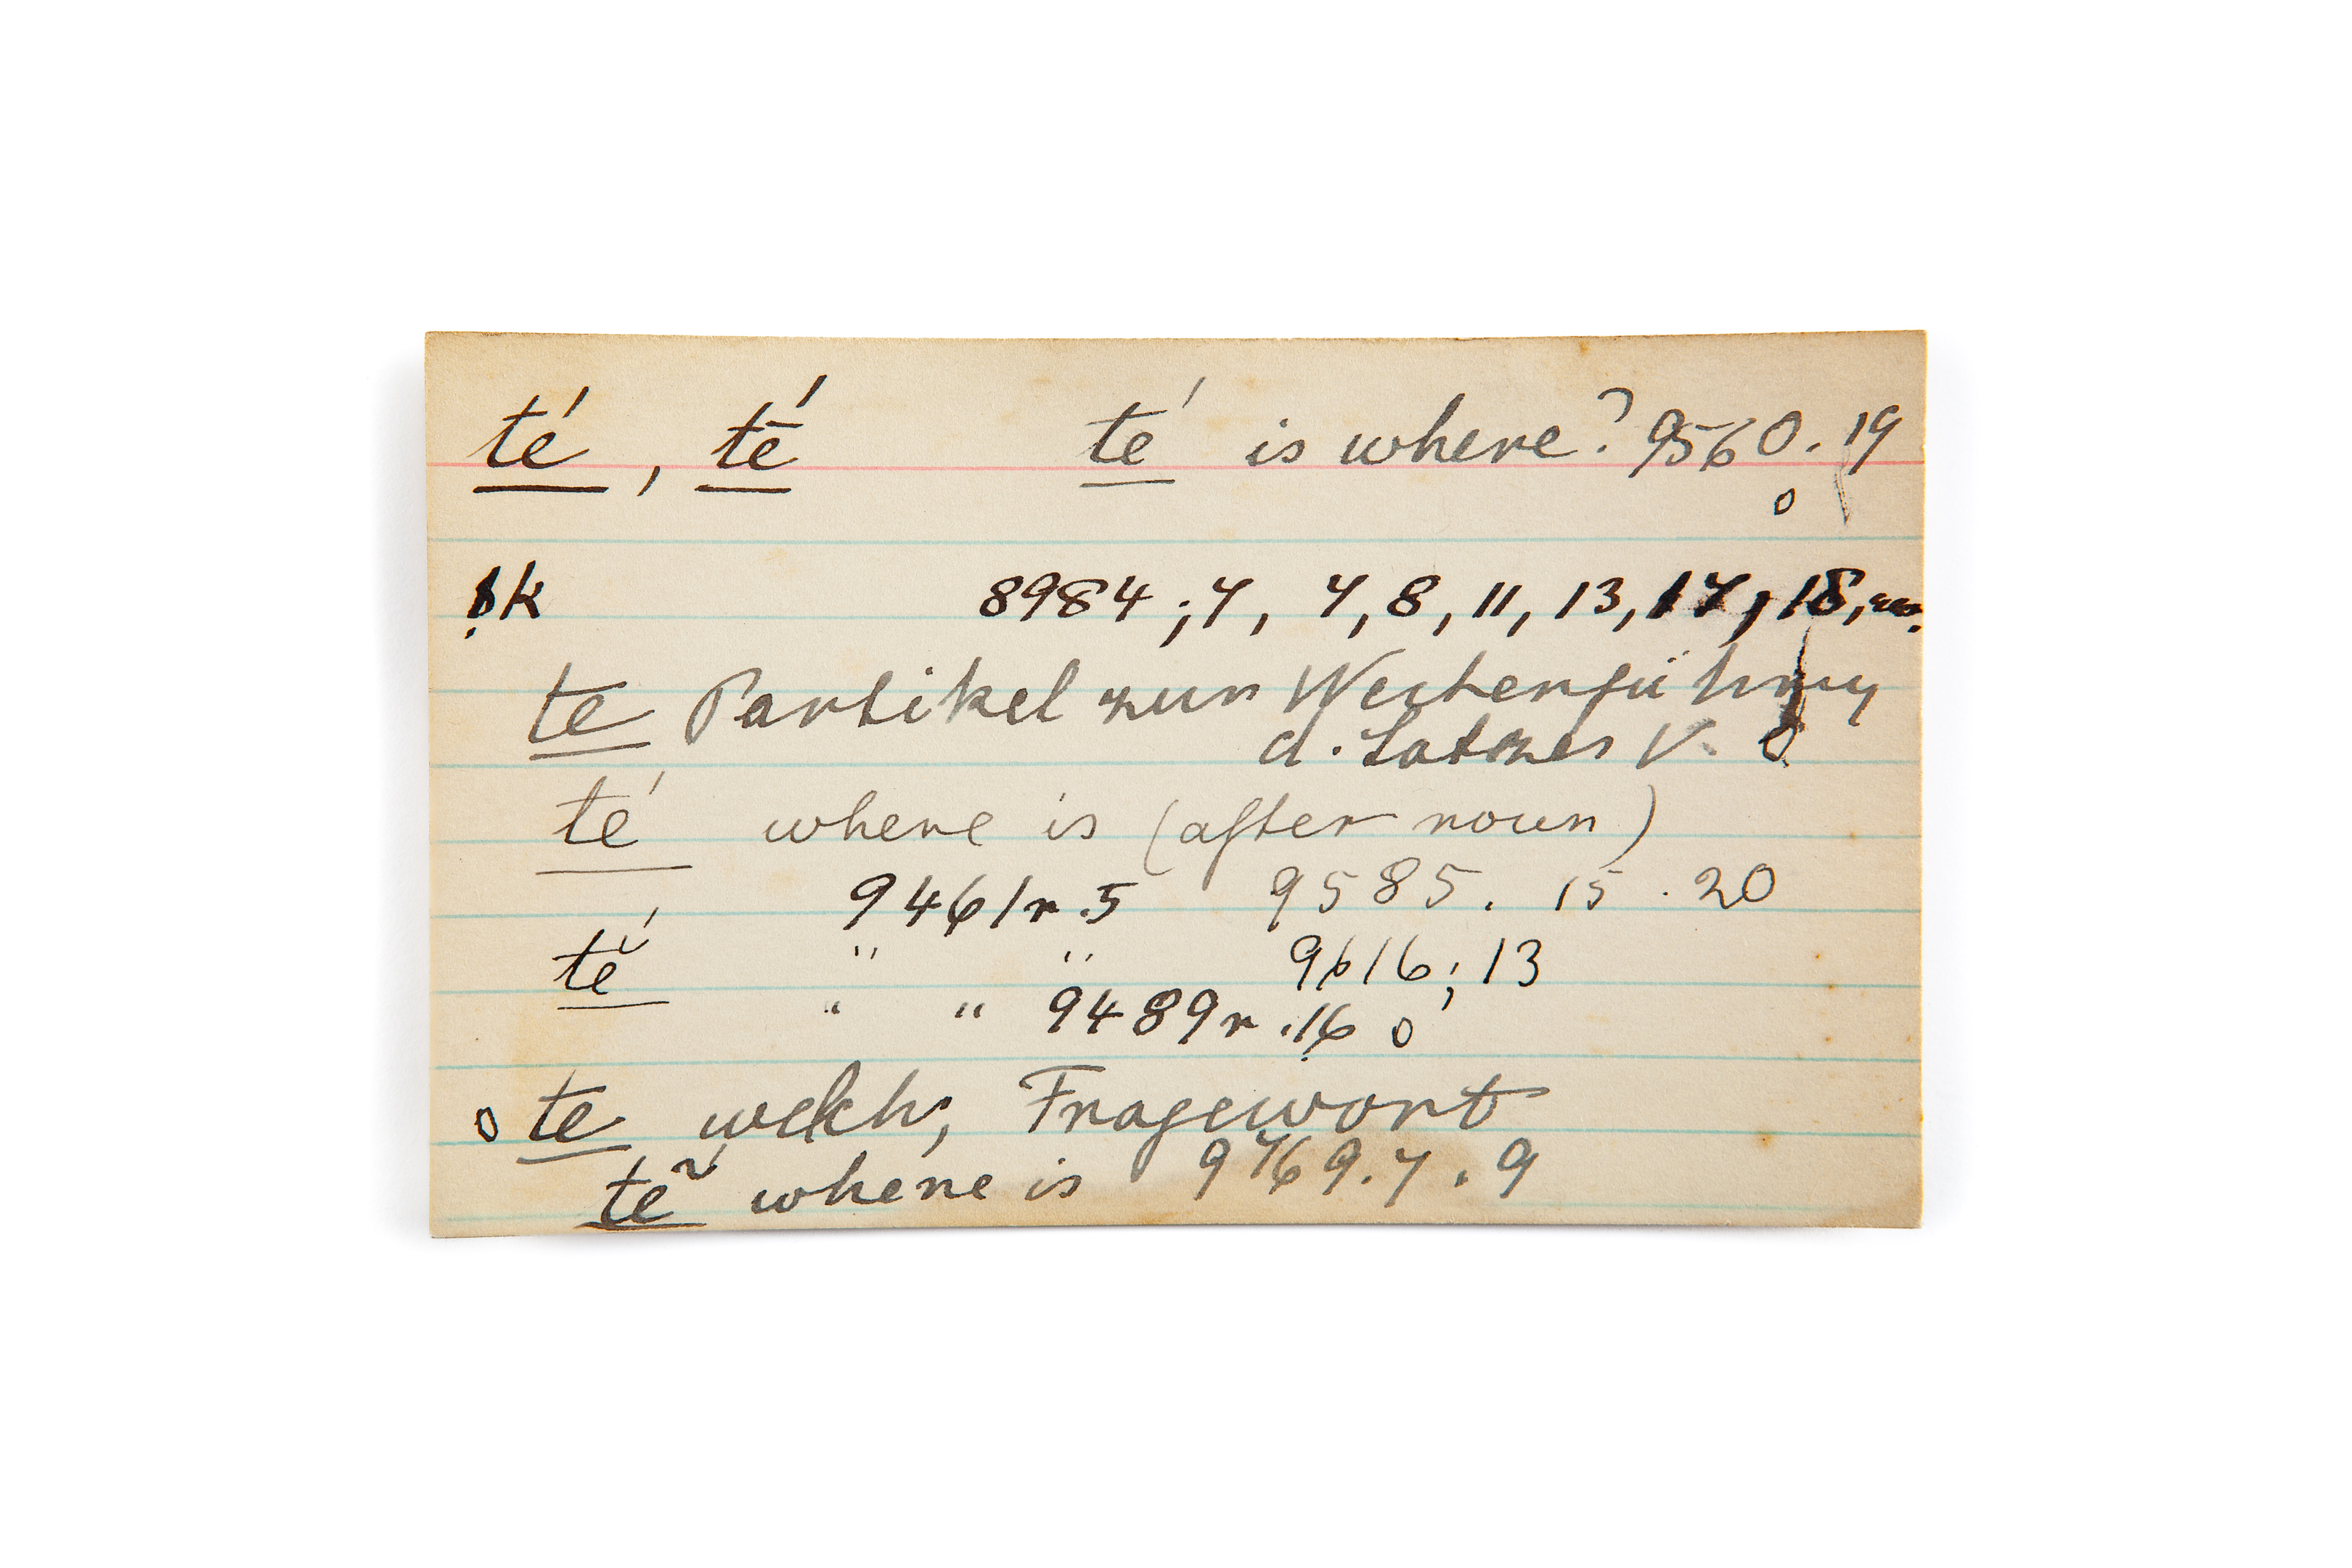 té, tḗ té is where? 9560.19
o
k 8984; 7, 7, 8, 11, 13, 17, 18,
te Partikel zur Weiterführung
d. Satzes V. o
té where is (after noun)
9461r.5 9585. 15 . 20
té " " 9616; 13
" " 9489r.16 o
o te welch, Fragewort
té where is 9769.7.9